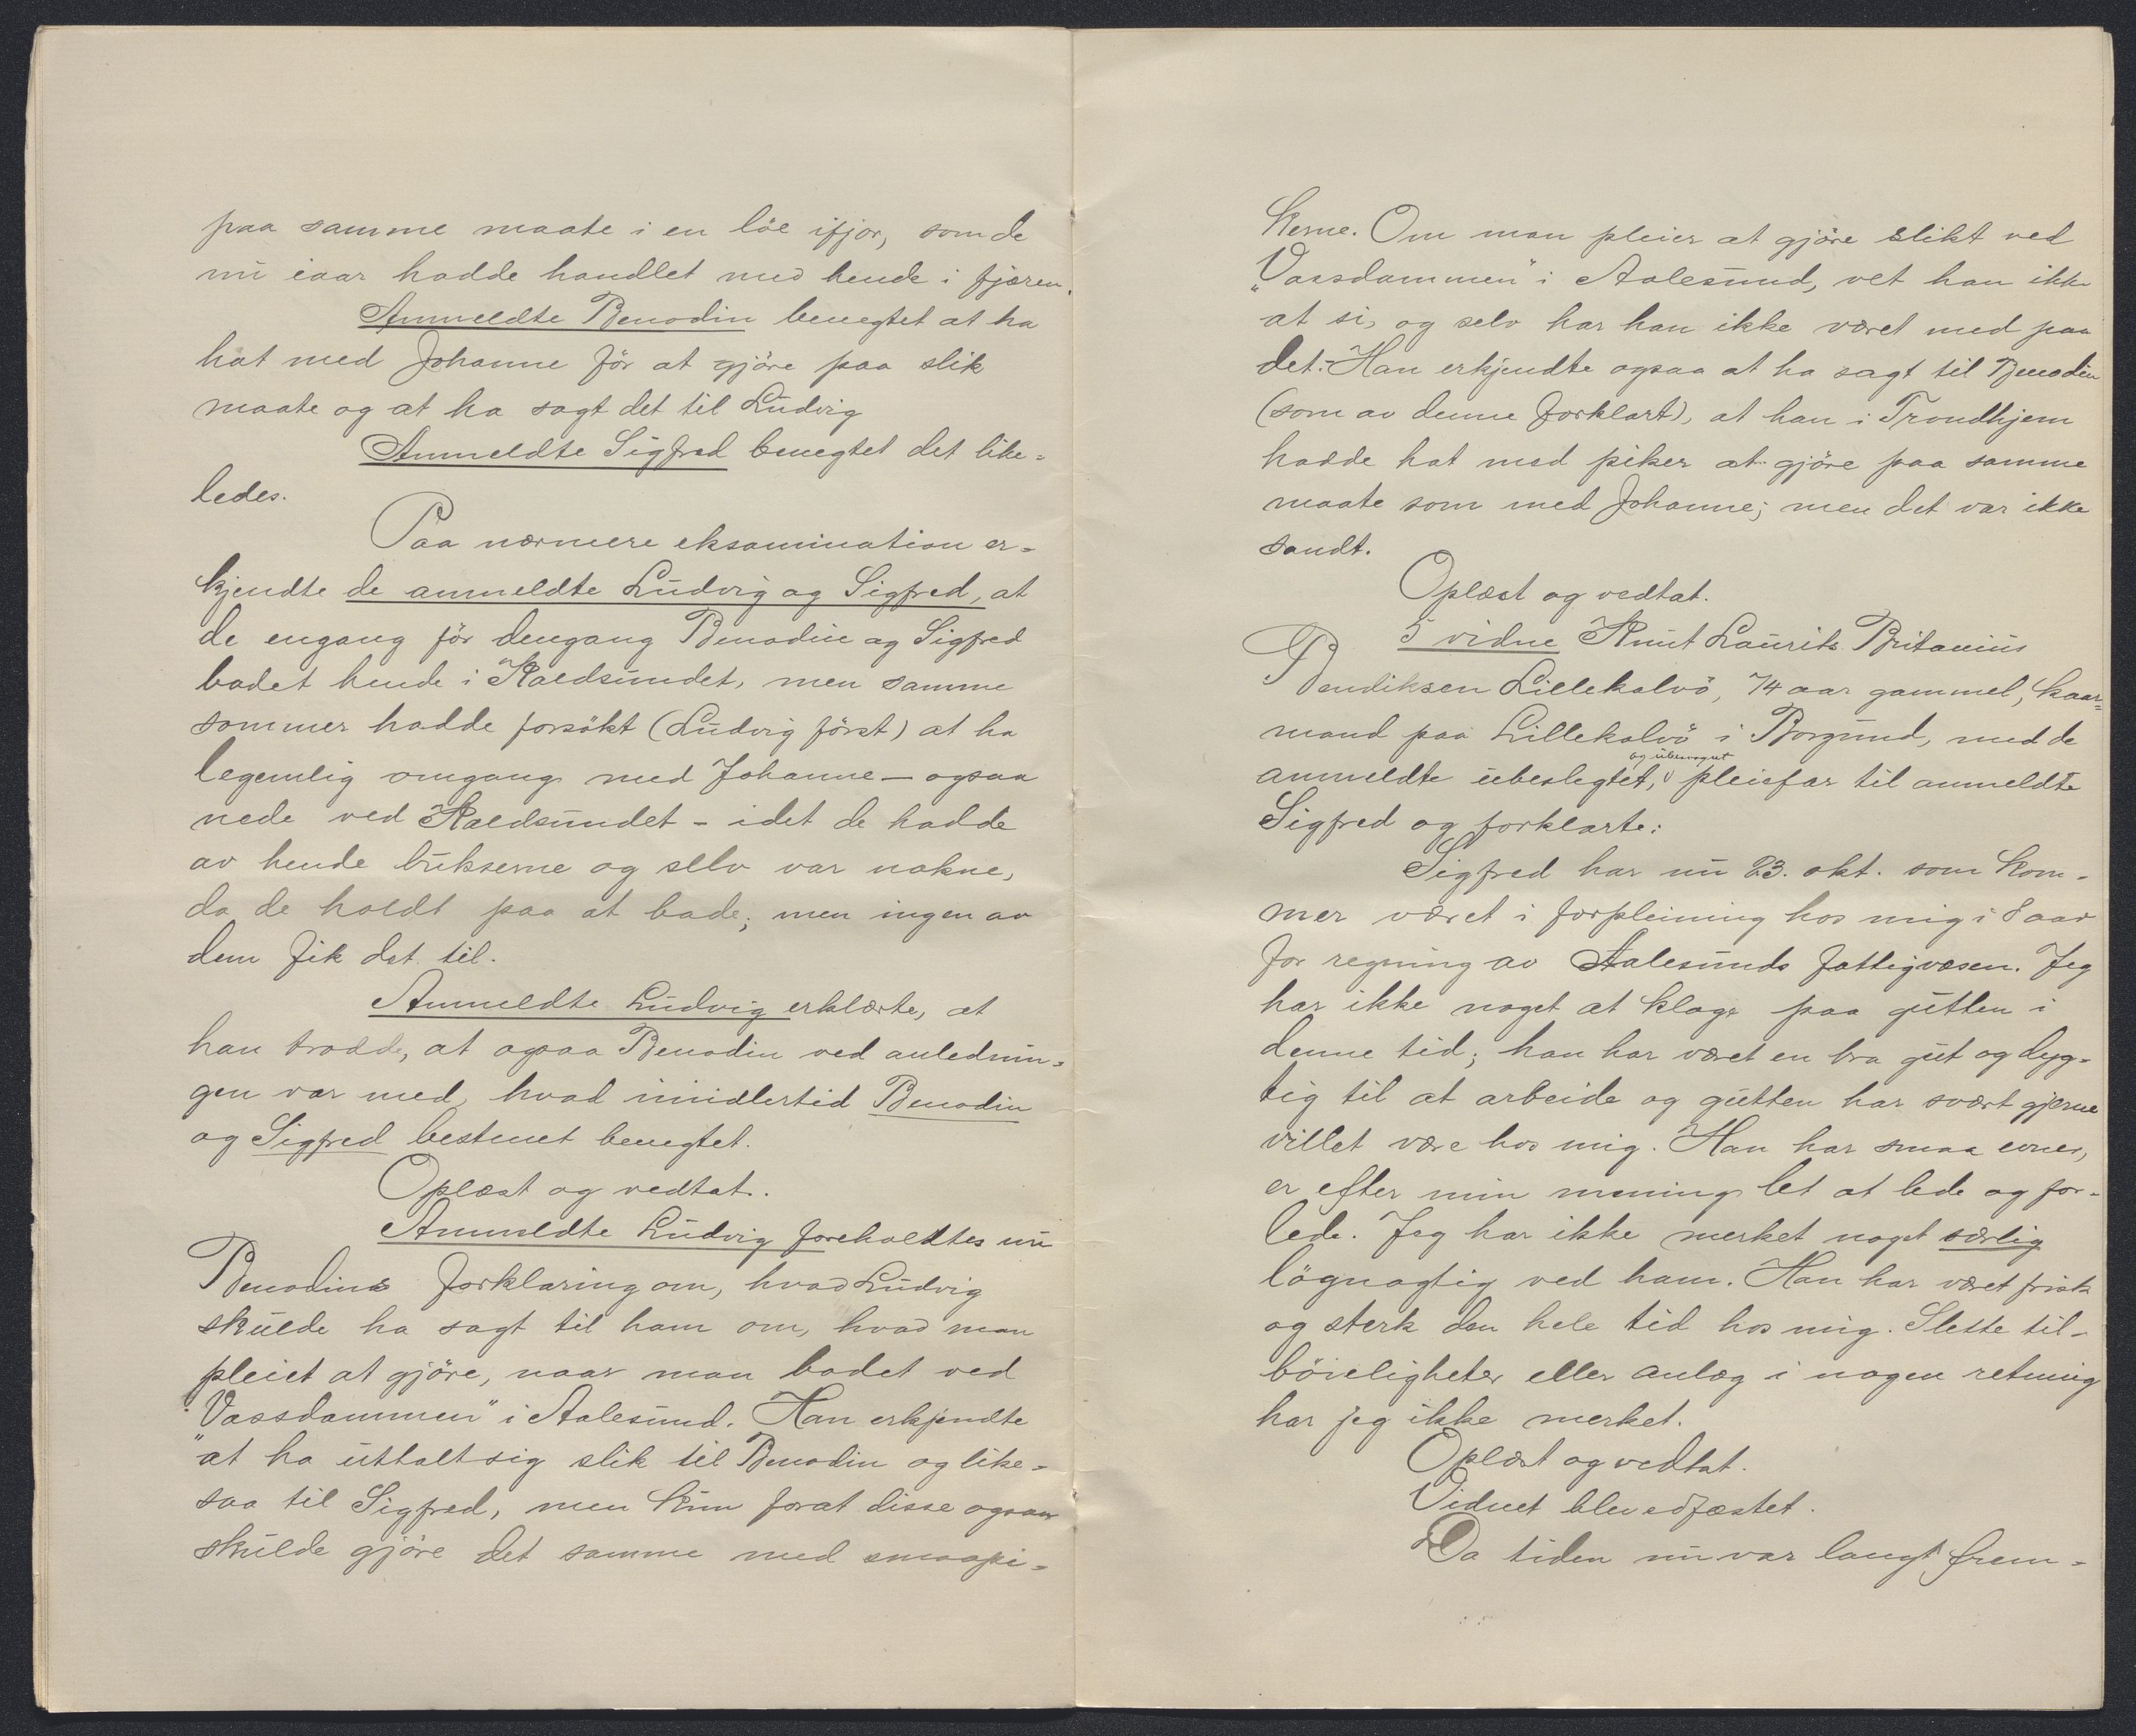 paa samme maate i en löe ifjor, som de
nu iaar hadde handlet med hende i fjæren.
Anmeldte Benodin benegtet at ha
hat med Johanne før at gjöre paa slik
maate og at ha sagt det til Ludvig
Anmeldte Sigfred benegtet det like=
ledes.
Paa nærmere eksamination er=
kjendte de anmeldte Ludvig og Sigfred, at
de engang för dengang Benodin og Sigfred
badet hende i Kaldsundet, men samme
sommer hadde forsökt (Ludvig först) at ha
legemlig omgang med Johanne – ogsaa
nede ved Kaldsundet – idet de hadde
av hende bukserne og selv var nakne,
da de holdt paa at bade; men ingen av
dem fik det til.
Anmeldte Ludvig erklærte, at
han trodde, at ogsaa Benodin ved anlednin=
gen var med, hvad imidlertid Benodin
og Sigfred bestemt benegtet.
Oplæst og vedtat.
Anmeldte Ludvig foreholdtes nu
Benodins forklaring om, hvad Ludvig
skulde ha sagt til ham om, hvad man
pleiet at gjöre, naar man badet ved
„Vassdammen" i Aalesund. Han erkjendte
at ha uttalt sig slik til Benodin og like=
saa til Sigfred, men kun forat disse ogsaa
skulde gjöre det samme med smaapi=
kerne. Om man pleier at gjöre slikt ved
„Vassdammen" i Aalesund, vet han ikke
at si, og selv har han ikke været med paa
det. Han erkjendte ogsaa at ha sagt til Benodin
(som av denne forklart), at han i Trondhjem
hadde hat med piker at gjöre paa samme
maate som med Johanne; men det var ikke
sandt.
Oplæst og vedtat.
5 vidne Knut Laurits Britanius
Bendiksen Lillekalvö, 74 aar gammel, kaar=
mand paa Lillekalvö i Borgund, med de
og ubesvogret
anmeldte ubeslegtet, pleiefar til anmeldte
Sigfred og forklarte:
Sigfred har nu 23. okt. som kom-
mer været i forpleining hos mig i 8 aar
for regning av Aalesunds fattigvæsen. Jeg
har ikke noget at klage paa gutten i
denne tid; han har været en bra gut og dyg=
tig til at arbeide og gutten har svært gjerne
villet være hos mig. Han har smaa evner,
er efter min mening let at lede og for-
lede. Jeg har ikke merket noget særlig
lögnagtig ved ham. Han har været frisk
og sterk den hele tid hos mig. Slette til-
böieligheter eller anlæg i nogen retning
har jeg ikke merket.
Oplæst og vedtat.
Vidnet blev edfæstet.
Da tiden nu var langt frem=